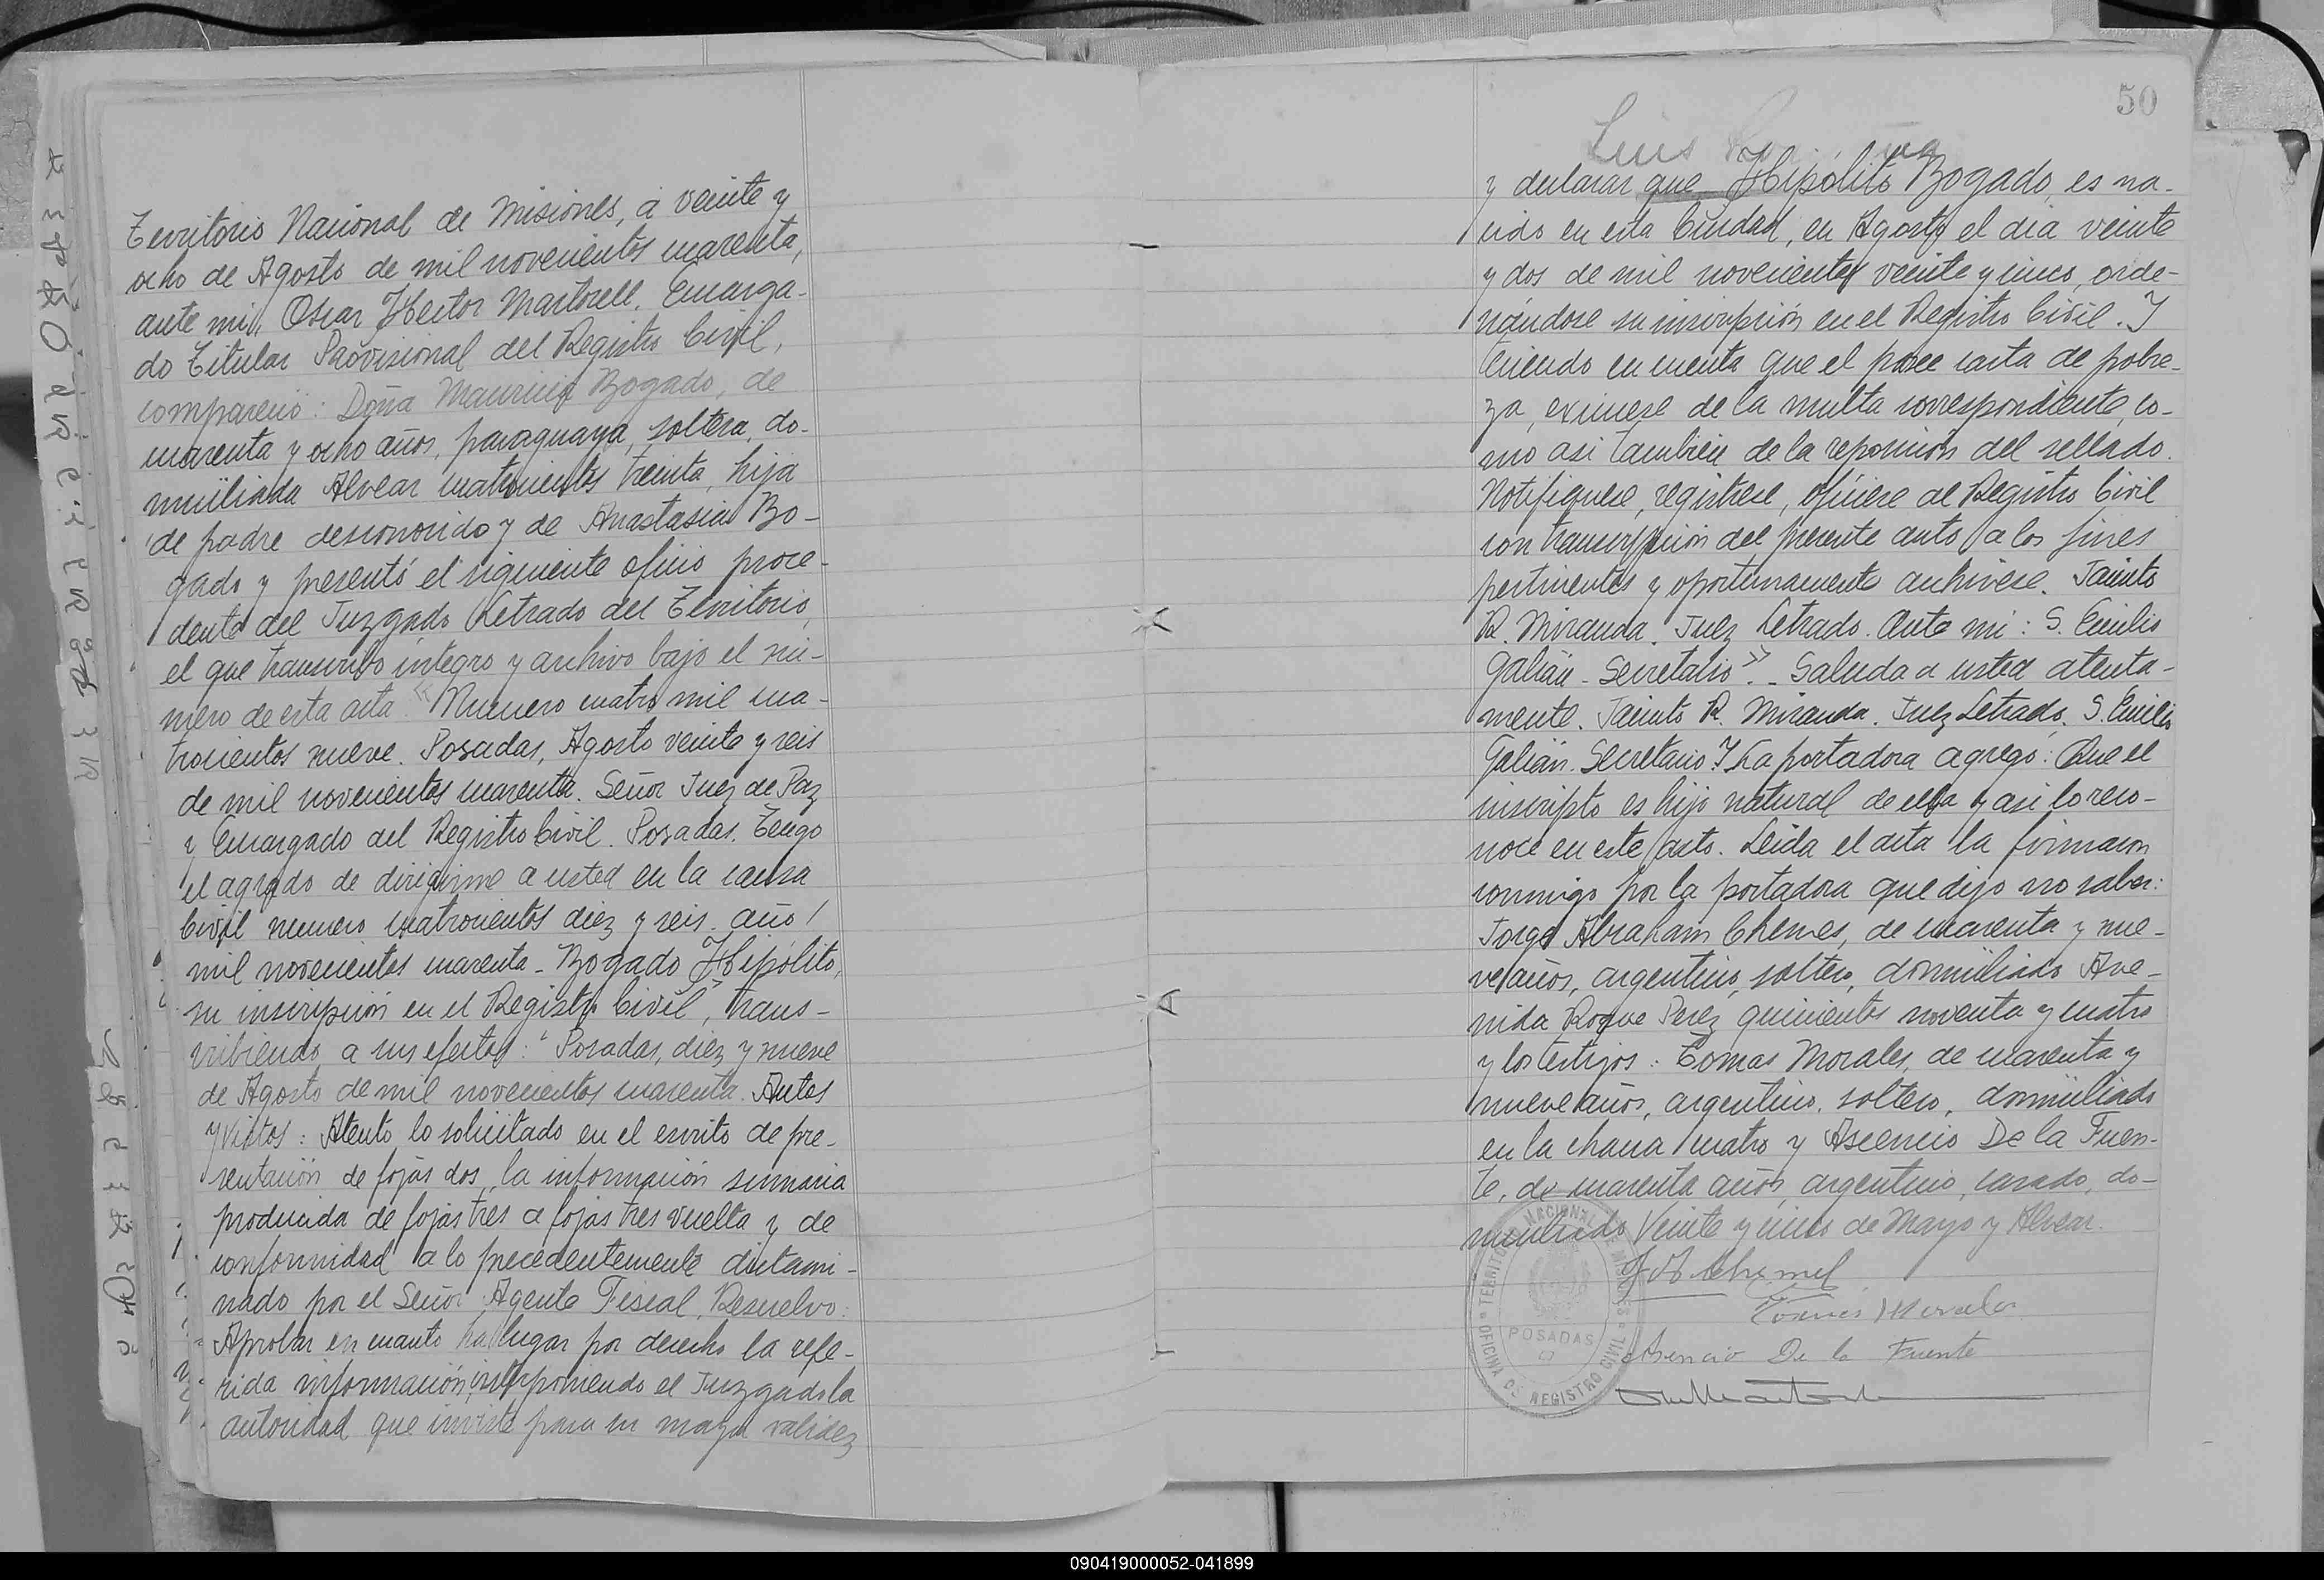 Territorio Nacional de Misiones, á veinte y
ocho de Agosto de mil novecientos cuarenta,
ante mi, Oscar Hector Martorell, Encarga-
do Titular Provisional del Registro Civil,
compareció: Doña Mauricia Bogado, de
cuarenta y ocho años, paraguaya, soltera, do-
miciliada Alvear cuatrocientos treinta, hija
de padre desconocido y de Anastasia Bo-
gado y presentó el siguiente oficio proce-
dente del Juzgado Letrado del Territorio,
el que transcribo íntegro y archivo bajo el nú-
mero de esta acta. "Numero cuatro mil cua-
trocientos nueve. Posadas, Agosto veinte y seis
de mil novecientos cuarenta. Señor Juez de Paz
y Encargado del Registro Civil. Posadas. Tengo
el agrado de dirigirme a usted en la causa
Civil numero cuatrocientos diez y seis, año
mil novecientos cuarenta - Bogado Hipólito,
su inscripción en el Registro Civil", trans-
cribiendo a sus efectos: "Posadas, diez y nueve
de Agosto de mil novecientos cuarenta. Autos
y Vistos: Atento lo solicitado en el escrito de pre-
sentación de fojas dos, la información sumaria
producida de fojas tres a fojas tres vuelta y de
conformidad a lo precedentemente dictami-
nado por el Señor Agente Fiscal, Resuelvo:
Aprobar en cuanto ha lugar por derecho la refe-
rida información, interponiendo el Juzgado la
autoridad que inviste para su mayor validez
50
Luis
y declarar que Hipólito Bogado, es na-
cido en esta Ciudad, en Agosto el dia veinte
y dos de mil novecientos veinte y cinco, orde-
nándose su inscripción en el Registro Civil. Y
teniendo en cuenta que el posee carta de pobre-
za, eximese de la multa correspondiente, co-
mo asi tambien de la reposición del sellado.
Notifiquese, registrese, ofíciese al Registro Civil
con transcripción del presente auto a los fines
pertinentes y oportunamente archivese. Jacinto
R. Miranda. Juez Letrado. Ante mi: S. Emilio
Galián - Secretario". - Saluda a usted atenta-
mente. Jacinto R. Miranda. Juez Letrado. S. Emilio
Galián. Secretario. Y La portadora agregó: Que el
inscripto es hijo natural de ella y asi lo reco-
noce en este acto. Leida el acta la firmaron
conmigo por la portadora que dijo no saber:
Jorge Abraham Chemes, de cuarenta y nue-
ve años, argentino, soltero, domiciliado Ave-
nida Roque Perez quinientos noventa y cuatro
y los testigos: Tomas Morales, de cuarenta y
nueve años, argentino, soltero, domiciliado
en la chacra cuatro y Ascencio De la Fuen-
te, de cuarenta años, argentino, casado, do-
miciliado Veinte y cinco de Mayo y Alvear.
Tomás Morales
Asencio De la Fuente
TERRITORIO NACIONAL DE MISIONES
POSADAS
OFICINA DE REGISTRO CIVIL
090419000052-041899